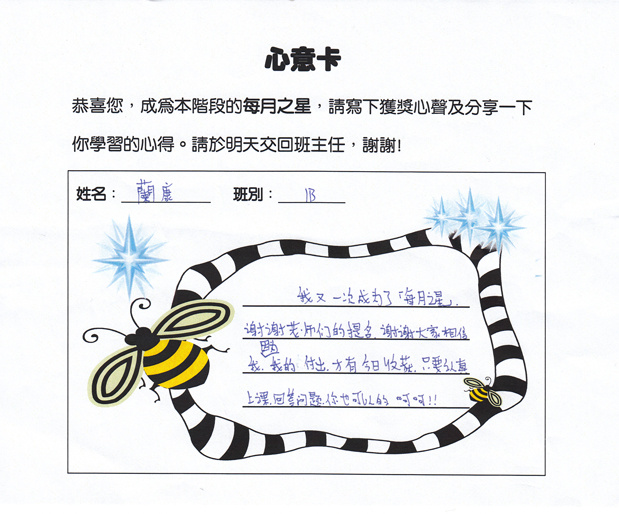 心意卡
恭喜您，成為本階段的每月之星，請寫下獲獎心聲及分享一下
你學習的心得。請於明天交回班主任，謝謝!
姓名： 蘭康 班別： 1B
我又一次成为了「每月之星」.
谢谢老师们的提名.谢谢大家相信
我.我的付出.才有今日收获.只要认真
上课.回答问题.你也可以的 呵呵!!